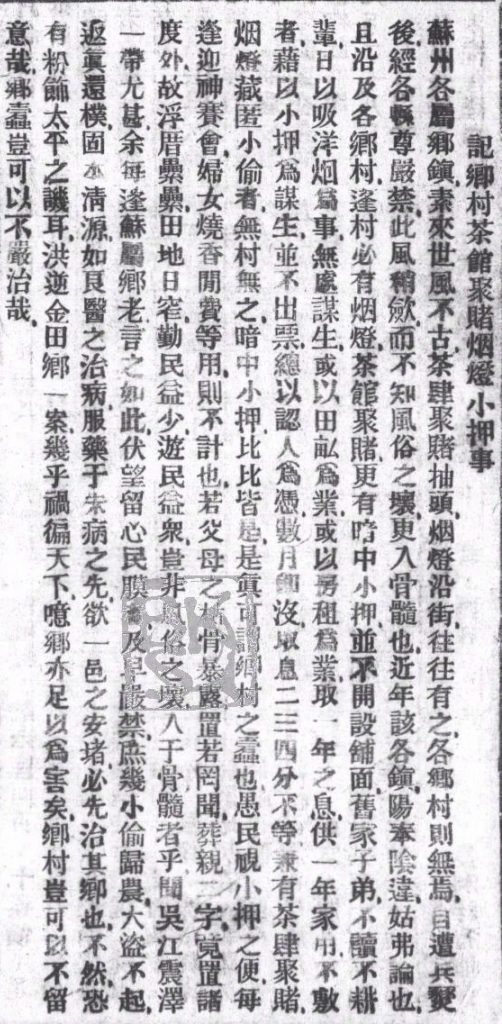 記鄉村茶館聚賭烟燈小押事
蘇州各屬鄉鎮素來世風不古茶肆聚賭抽頭烟燈沿街往往有之各鄉村則無焉自遭兵燹
後經各縣尊嚴禁此風稍歛而不知風俗之壞更入骨髓也近年該各鎮陽奉陰違姑弗論也
且沿及各鄉村逢村必有烟燈茶館聚賭更有暗中小押並不開設舖面舊家子弟不讀不耕
輩日以吸洋烟為事無處謀生或以田畝為業或以房租為業取一年之息供一年家用不敷
者藉以小押為謀生並不出票總以認人為憑數月即沒取息二三四分不等兼有茶肆聚賭
烟燈藏匿小偷者無村無之暗中小押比比皆是是真可謂鄉村之蠹也愚民視小押之便每
逢迎神賽會婦女燒香閒費等用則不計也若父母之骨暴露置若罔聞葬親二字竟置諸
度外故浮厝纍纍田地日窄勤民益少遊民益衆豈非俗之壞入于骨髓者乎聞吳江震澤
一帶尤甚余每逢蘇屬鄉老言之如此伏望留心民瘼者及早嚴禁庶幾小偷歸農大盜不起
返眞還樸固本清源如良醫之治病服藥于未病之先欲一邑之安堵必先治其鄉也不然恐
有粉飾太平之譏耳洪逆金田鄉一案幾乎禍徧天下噫鄉亦足以為害矣鄉村豈可以不留
意哉鄉蠹豈可以不嚴治哉